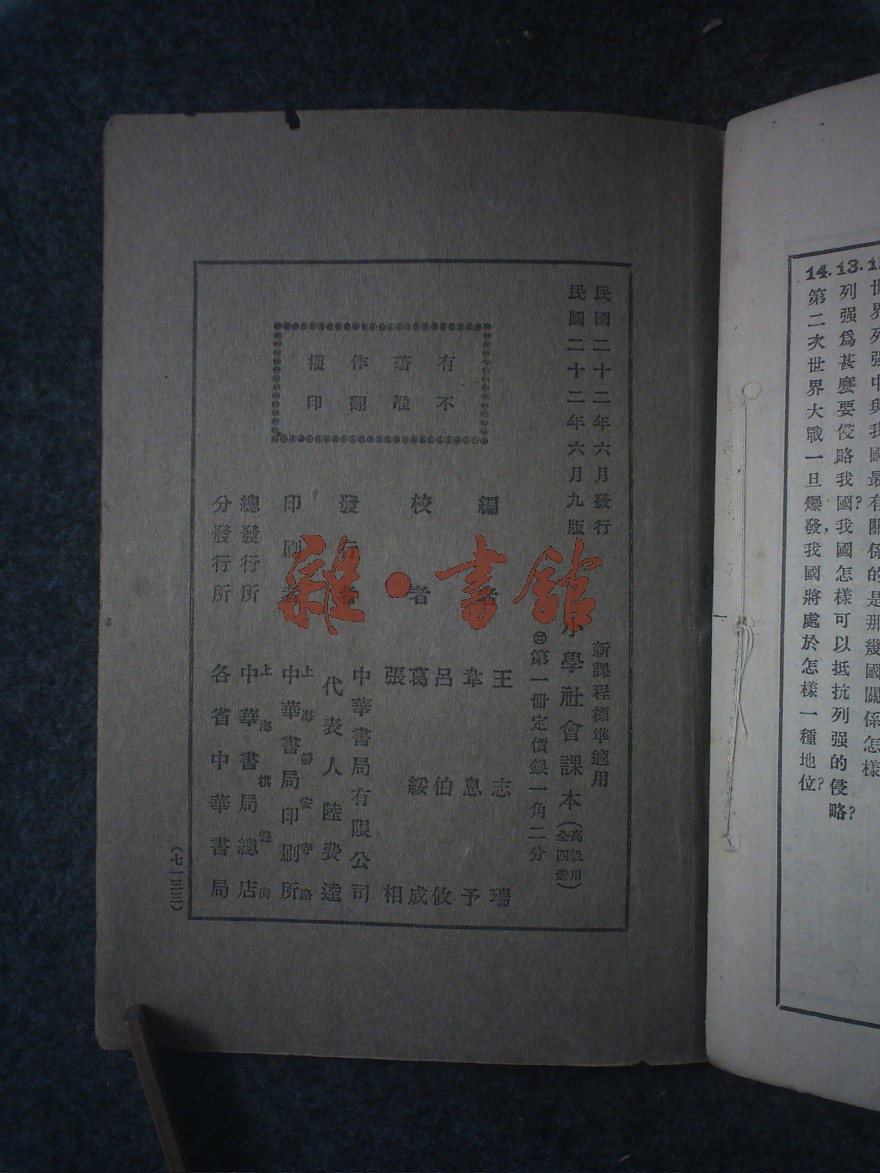 14.
13.
世界列强中與我國最有關係的是那幾國關係怎樣
列强爲甚麽要侵略我國?我國怎樣可以抵抗列强的侵略?
第二次世界大戰一旦爆發,我國將處於怎樣一種地位?
民國二十二年六月發行
民國二十二年六月九版
有著作權
不准翻印
新課程標準適用
小學社會課本(高級用全四册)
第一册定價銀一角二分
編者
王志瑞
韋息予
校者
呂伯攸
葛綏成
張相
發行者
中華書局有限公司
代表人陸費逵
印刷者
上海靜安寺路
中華書局印刷所
總發行所
上海棋盤街
中華書局總店
分發行所
各省中華書局
(七一三三)
雜·書館